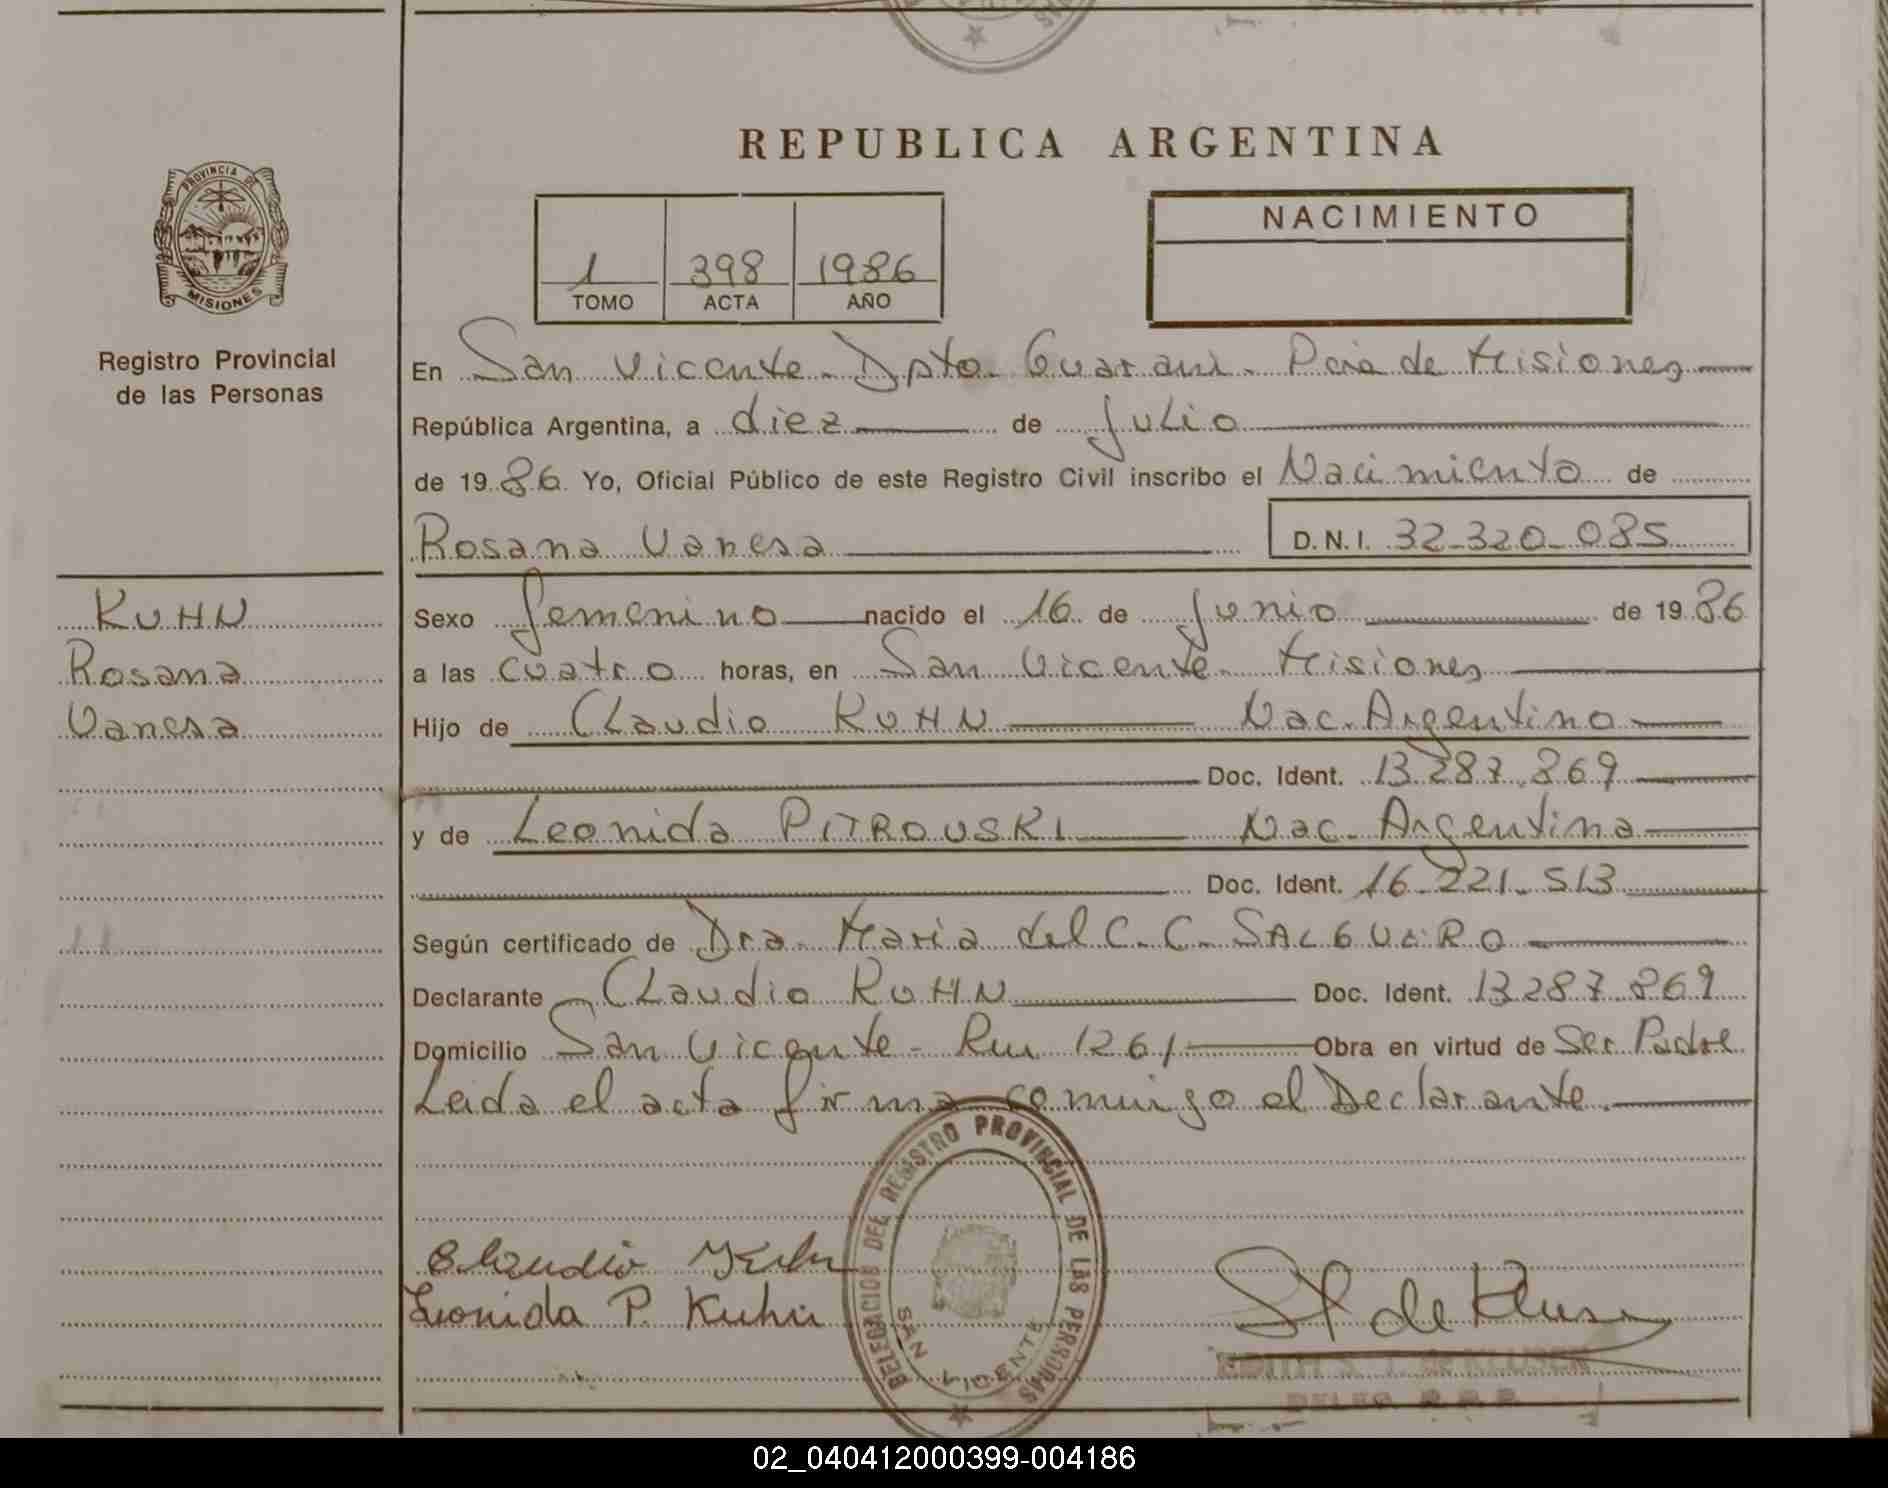 REPUBLICA ARGENTINA
PROVINCIA DE
MISIONES
Registro Provincial
de las Personas
1 398 1986
TOMO ACTA AÑO
NACIMIENTO
En San Vicente - Dpto. Guarani - Pcia de Misiones
República Argentina, a diez de Julio
de 1986 Yo, Oficial Público de este Registro Civil inscribo el Nacimiento de
Rosana Vanesa D.N.I. 32-320-085
KUHN
Rosana
Vanesa
Sexo femenino nacido el 16 de Junio de 1986
a las cuatro horas, en San Vicente - Misiones
Hijo de Claudio KUHN Nac. Argentino
Doc. Ident. 13.287.869
y de Leonida PITROUSKI Nac. Argentina
Doc. Ident. 16-221-513
Según certificado de Dra. Maria del C. C. SALGUERO
Declarante Claudio KUHN Doc. Ident. 13.287.869
Domicilio San Vicente - Ru 1261 Obra en virtud de Ser Padre
Leida el acta firma comuigo el Declarante.
DELEGACION DEL REGISTRO PROVINCIAL DE LAS PERSONAS
SAN VICENTE
Claudio Kuhn
Leonida P. Kuhn
02_040412000399-004186